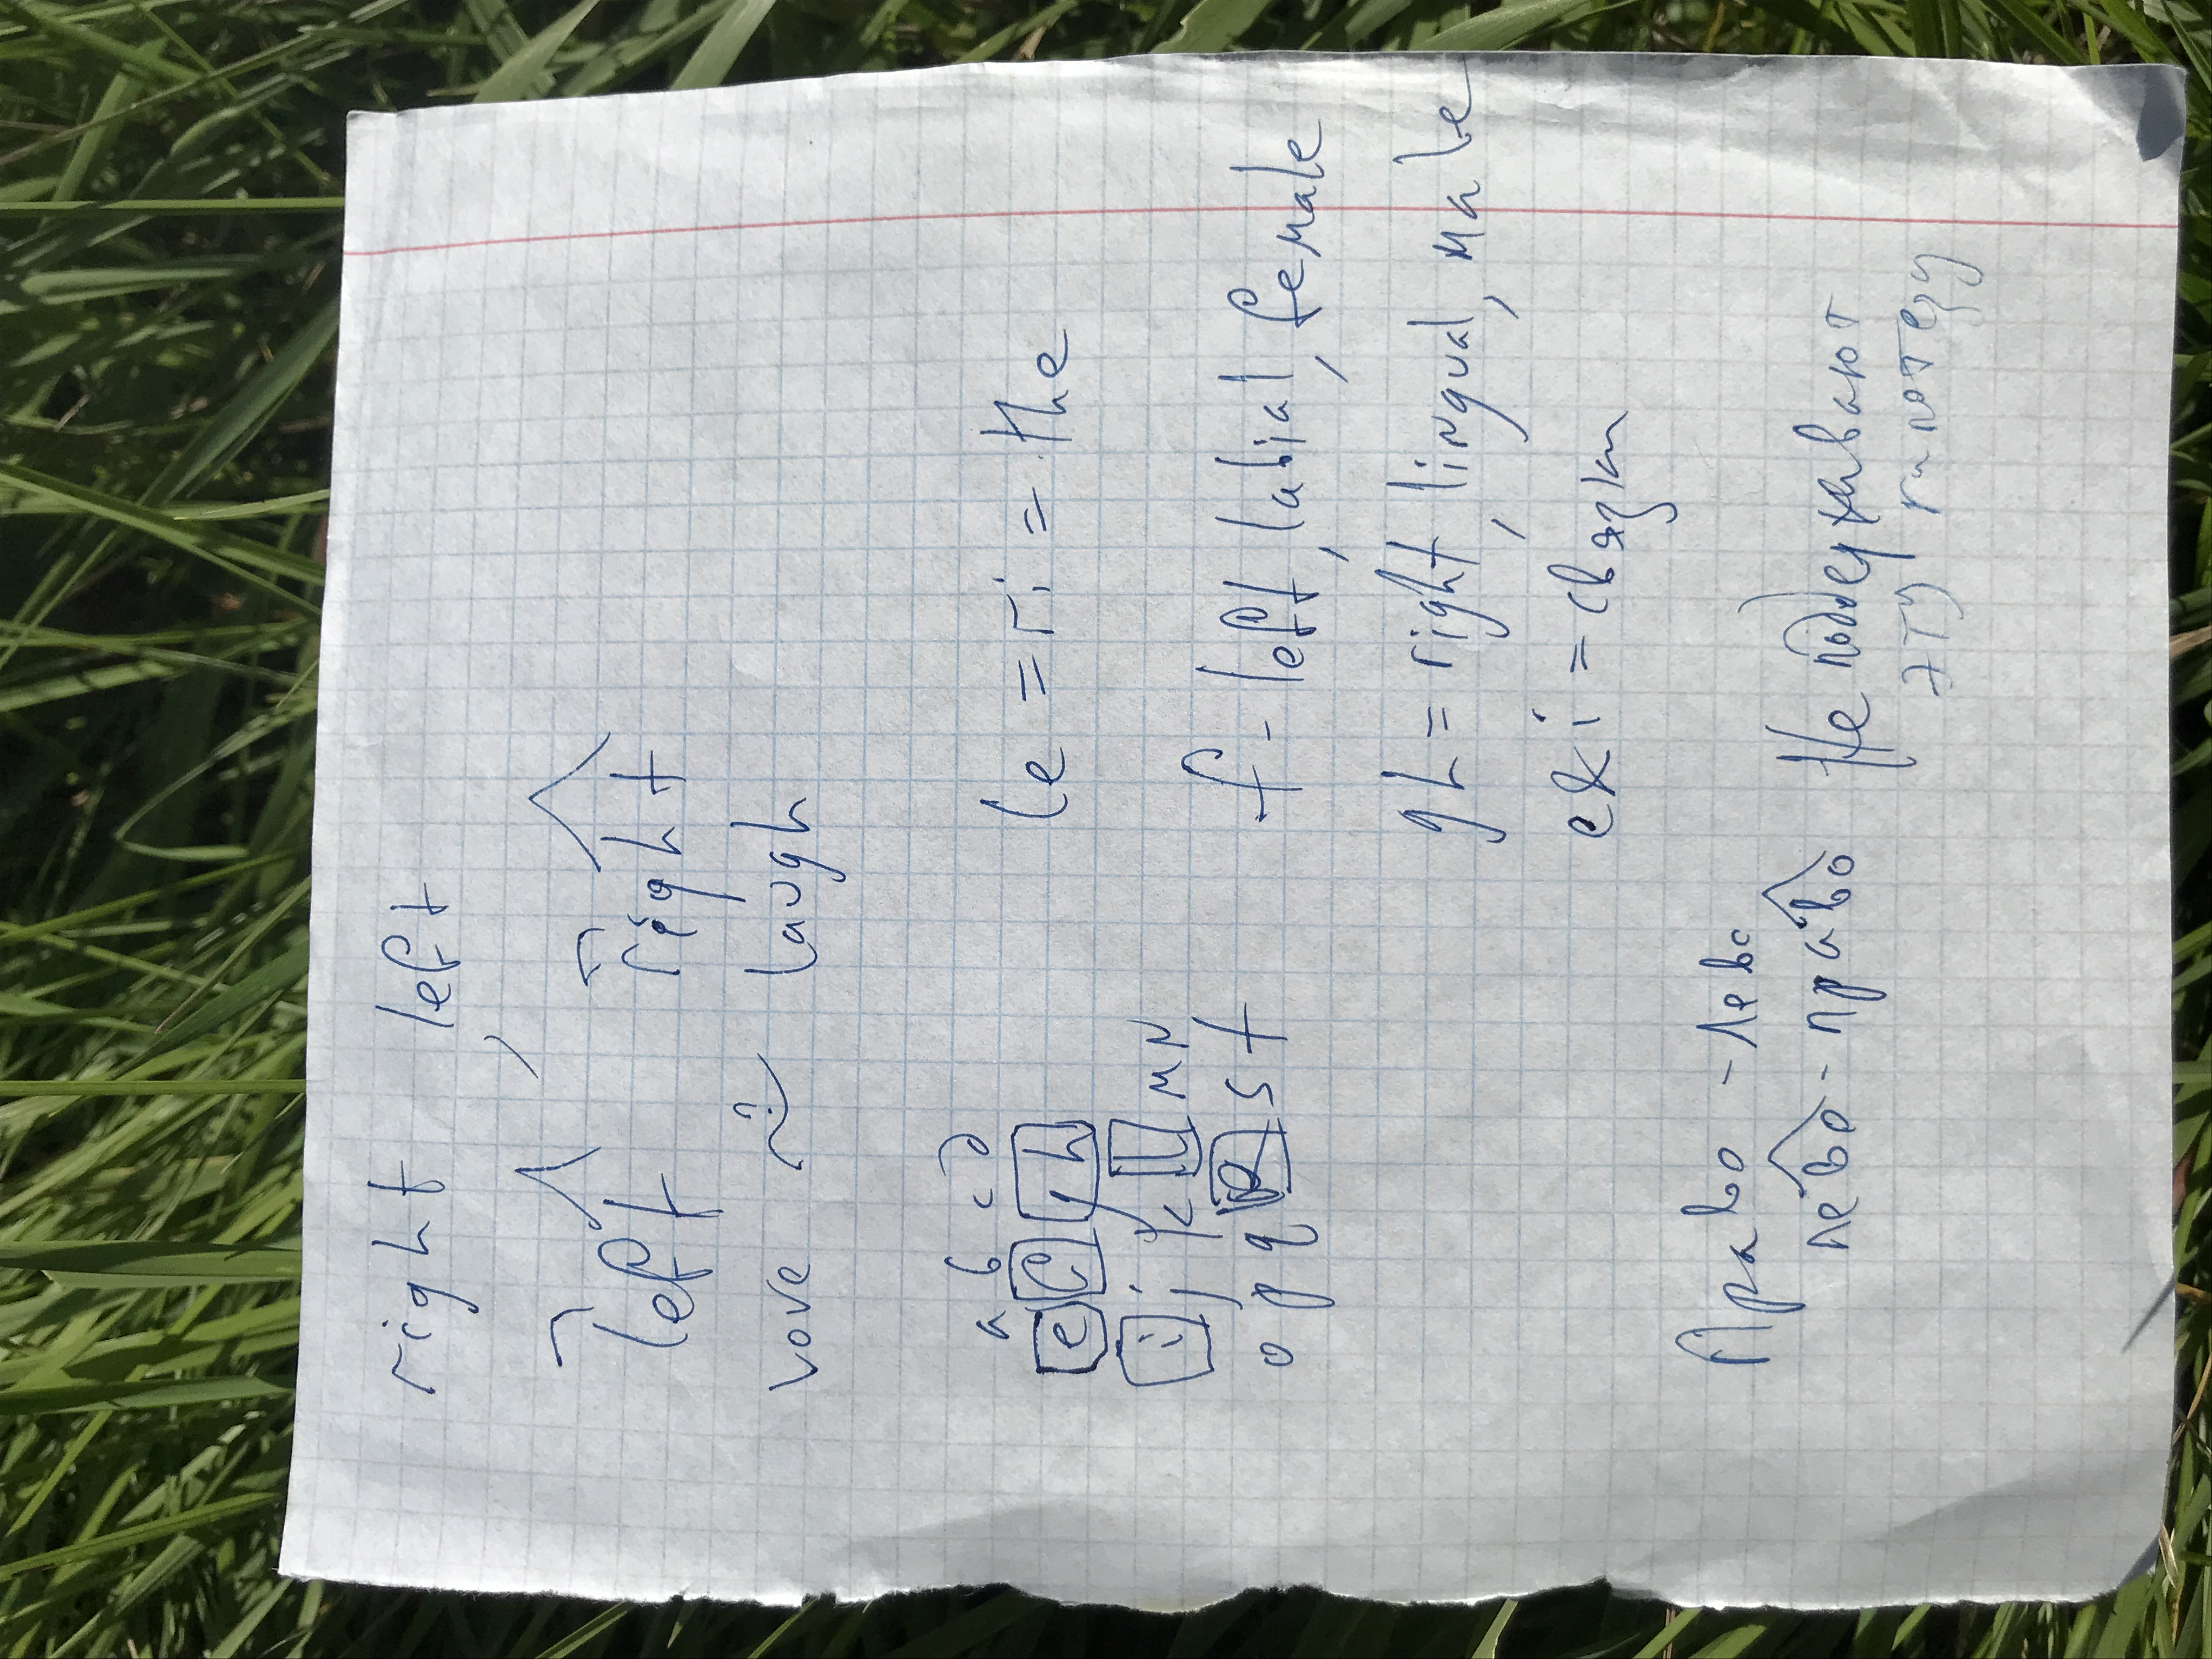 right, left
left right
love ~? laugh
a b c d
e f g h
i j k l m n
o p q R s t
le = ri = the
f - left, labial, female
gh = right, lingual, male
e & i = связки
Право - лево
лево - право Не поддерживают
эту гипотезу